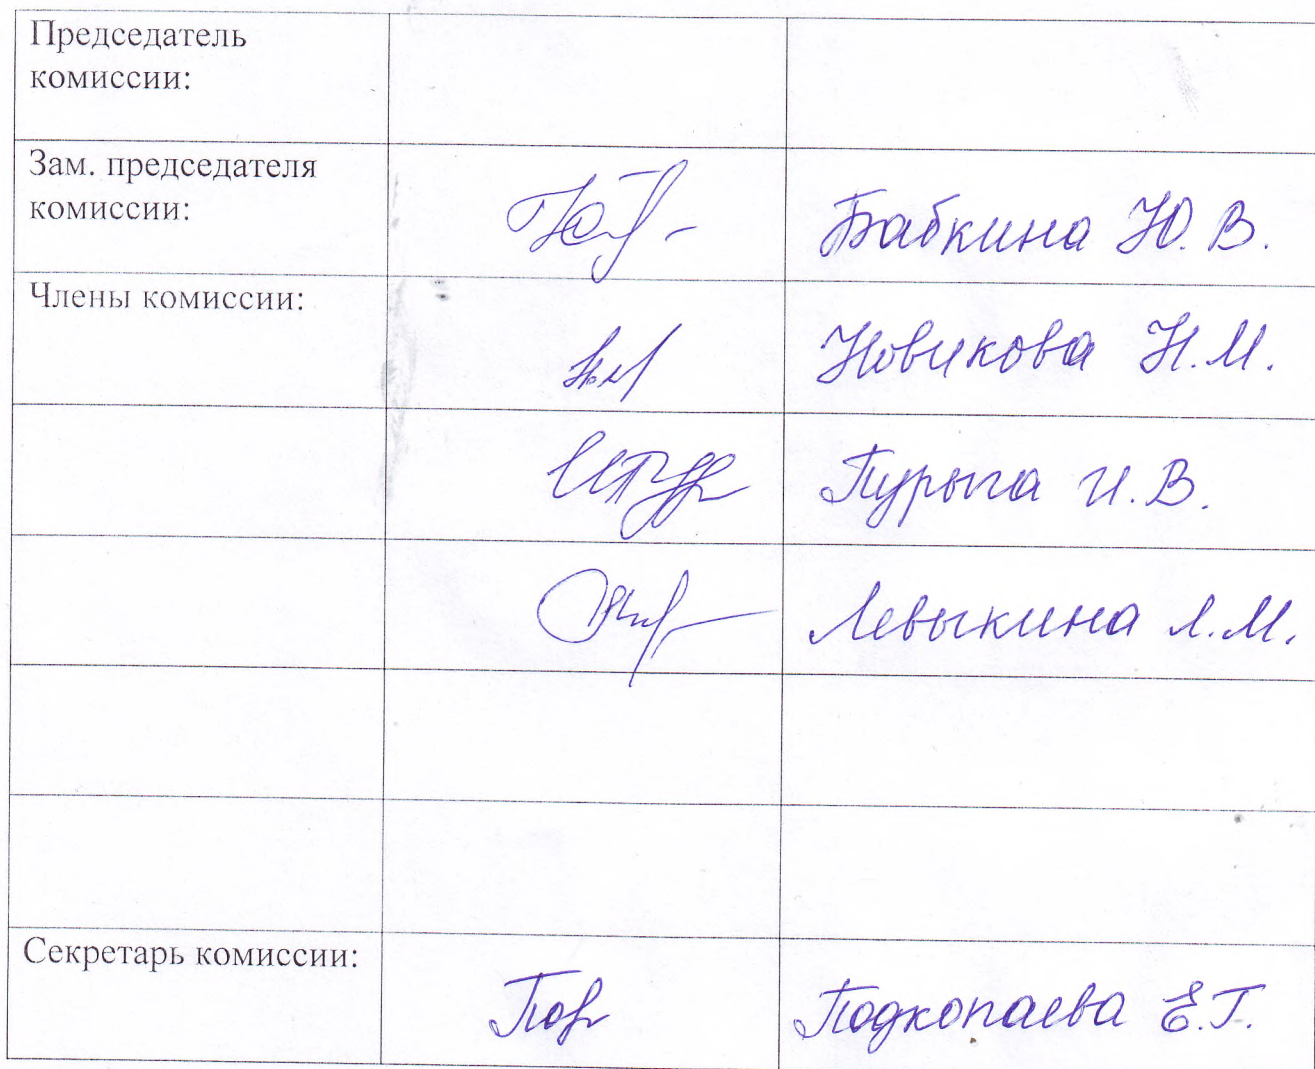 Председатель
комиссии:
Зам. председателя
комиссии:
Бабкина Ю. В.
Члены комиссии:
Новикова Н. М.
Пурыга И. В.
Левыкина Л. М.
Секретарь комиссии:
Подкопаева Е. Г.